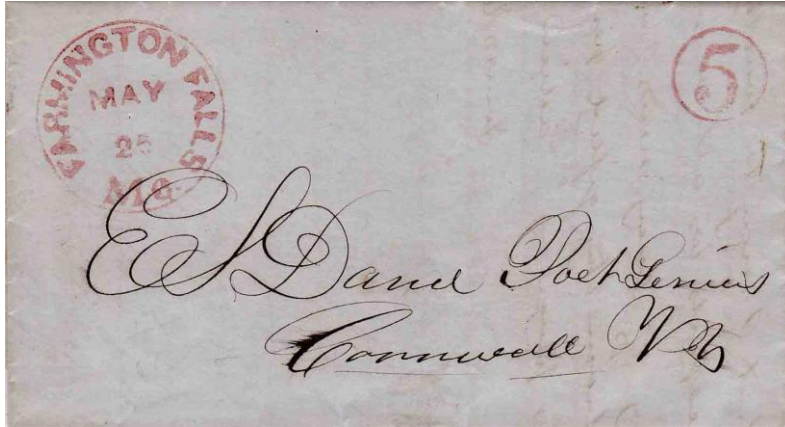 FARMINGTON FALLS
MAY
25
Me.
5
E S Dana Poet Genius
Cornwall Vt